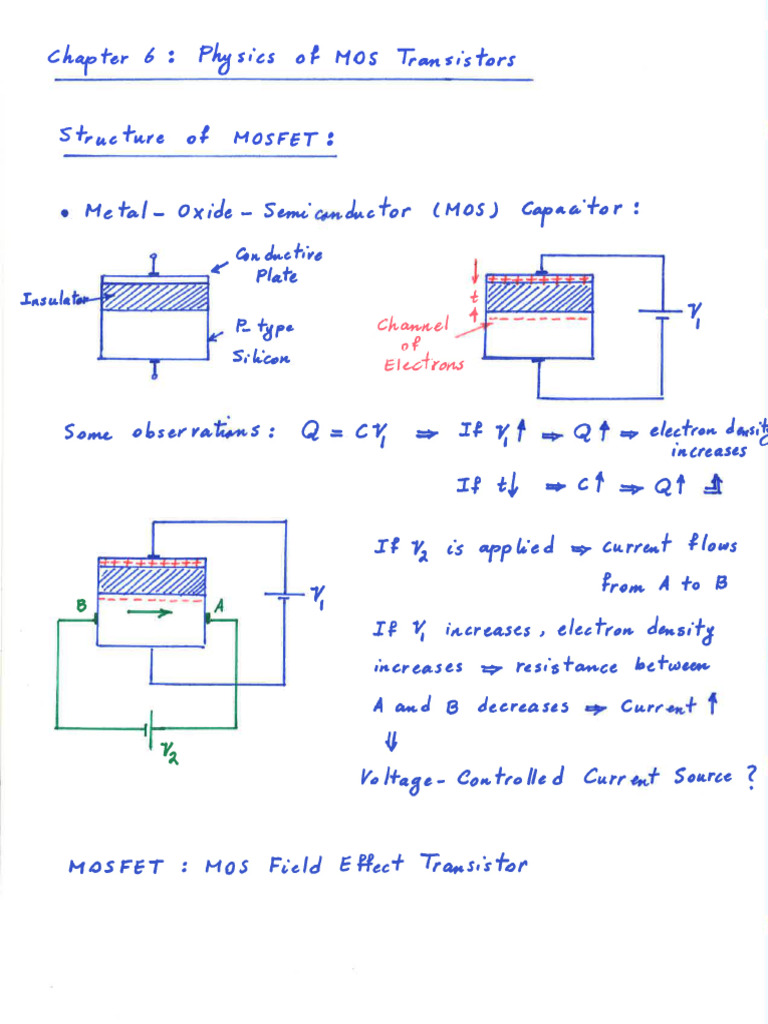 Chapter 6 : Physics of MOS Transistors
Structure of MOSFET :
• Metal - Oxide - Semiconductor (MOS) Capacitor :
Conductive
Plate
Insulator
P-type
Silicon
t
Channel
of
Electrons
V1
Some observations : Q = CV1 ⇒ If V1↑ ⇒ Q↑ ⇒ electron density
increases
If t↓ ⇒ C↑ ⇒ Q↑
If V2 is applied ⇒ current flows
from A to B
+ + + + + + + +
- - - - - - - -
V1
B → A
V2
If V1 increases, electron density
increases ⇒ resistance between
A and B decreases ⇒ Current ↑
⇓
Voltage - Controlled Current Source ?
MOSFET : MOS Field Effect Transistor